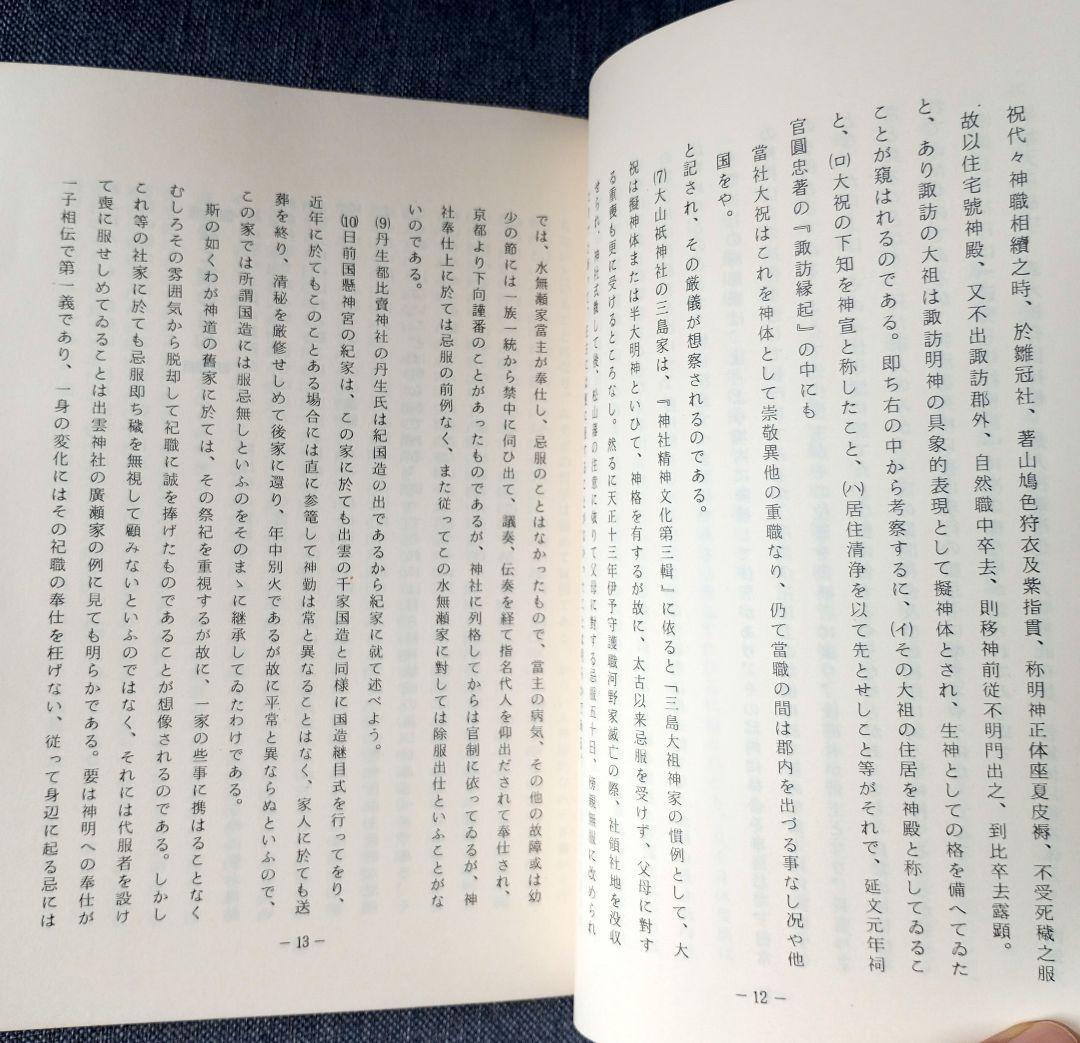 祝代々神職相續之時、於雛冠社、著山鳩色狩衣及紫指貫、称明神正体座夏皮褥、不受死穢之服
故以住宅號神殿、又不出諏訪郡外、自然職中卒去、則移神前従不明門出之、到比卒去露顕。
と、あり諏訪の大祖は諏訪明神の具象的表現として擬神体とされ、生神としての格を備へてゐた
ことが窺はれるのである。即ち右の中から考察するに、(イ)その大祖の住居を神殿と称してゐるこ
と、(ロ)大祝の下知を神宣と称したこと、(ハ)居住清浄を以て先とせしこと等がそれで、延文元年祠
官圓忠著の『諏訪縁起』の中にも
當社大祝はこれを神体として崇敬異他の重職なり、仍て當職の間は郡内を出づる事なし况や他
国をや。
と記され、その厳儀が想察されるのである。
(7)大山祇神社の三島家は、『神社精神文化第三輯』に依ると「三島大祖神家の慣例として、大
祝は擬神体または半大明神といひて、神格を有するが故に、太古以来忌服を受けず、父母に對す
る重喪も更に受けるところなし。然るに天正十三年伊予守護職河野家滅亡の際、社領社地を没収
せられ、神社式微して後、松山藩の注意に依りて父母に對する忌服五十日、傍親無服に改められ
― 12 ―
では、水無瀬家當主が奉仕し、忌服のことはなかったもので、當主の病気、その他の故障或は幼
少の節には一族一統から禁中に伺ひ出て、議奏、伝奏を経て指名代人を仰出だされて奉仕され、
京都より下向謹番のことがあったものであるが、神社に列格してからは官制に依ってゐるが、神
社奉仕上に於ては忌服の前例なく、また従ってこの水無瀬家に對しては除服出仕といふことがな
いのである。
(9)丹生都比賣神社の丹生氏は紀国造の出であるから紀家に就て述べよう。
(10)日前国懸神宮の紀家は、この家に於ても出雲の千家国造と同様に国造継目式を行ってをり、
近年に於てもこのことある場合には直に参篭して神勤は常と異なることはなく、家人に於ても送
葬を終り、清秘を厳修せしめて後家に還り、年中別火であるが故に平常と異ならぬといふので、
この家では所謂国造には服忌無しといふのをそのまゝに継承してゐたわけである。
斯の如くわが神道の舊家に於ては、その祭祀を重視するが故に、一家の些事に携はることなく
むしろその雰囲気から脱却して祀職に誠を捧げたものであることが想像されるのである。しかし
これ等の社家に於ても忌服即ち穢を無視して顧みないといふのではなく、それには代服者を設け
て喪に服せしめてゐることは出雲神社の廣瀬家の例に見ても明らかである。要は神明への奉仕が
一子相伝で第一義であり、一身の変化にはその祀職の奉仕を枉げない、従って身辺に起る忌には
― 13 ―